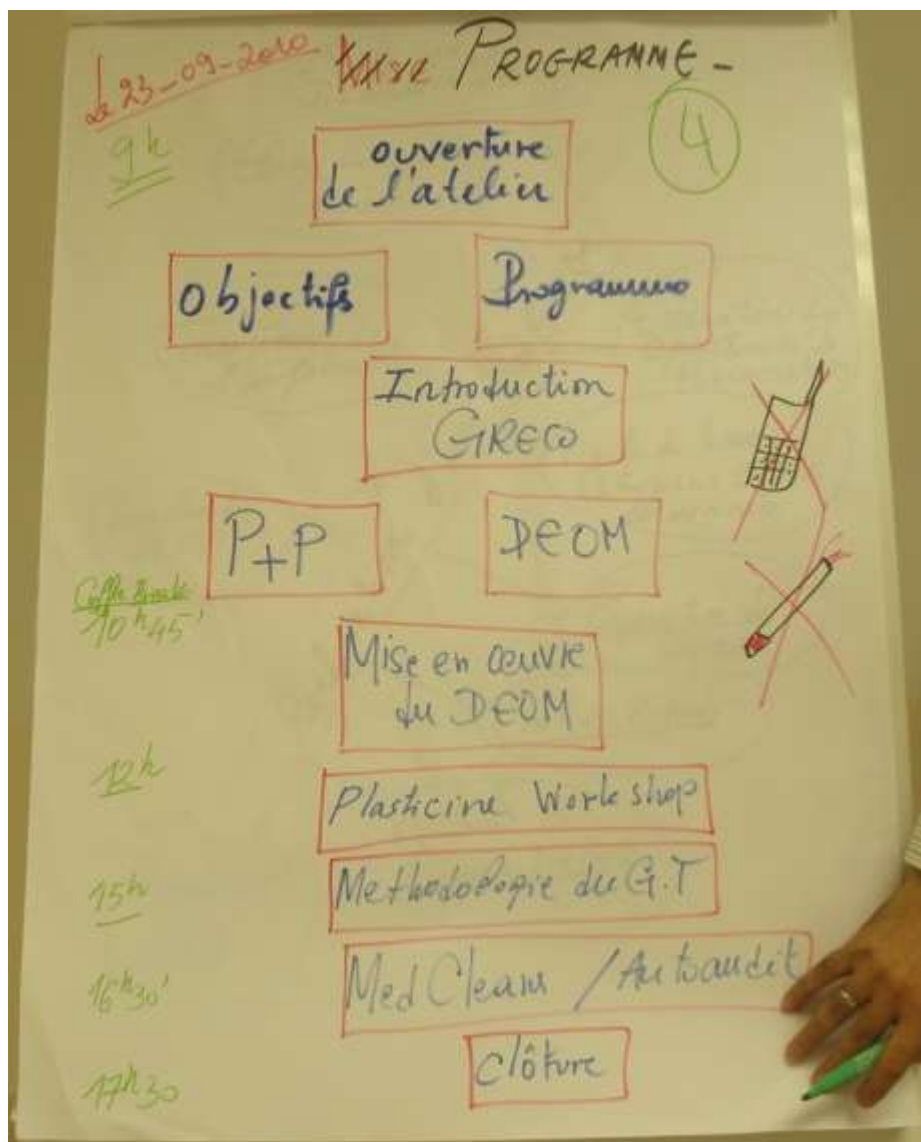 Le 23-09-2010
PROGRAMME -
9h
4
ouverture
de l'atelier
Objectifs
Programme
Introduction
GRECO
P+P
DEOM
Coffee Break
10h45'
Mise en œuvre
du DEOM
12h
Plasticine Workshop
15h
Methodologie du G.T
16h30'
Med Cleans / Autoaudit
17h30
Clôture